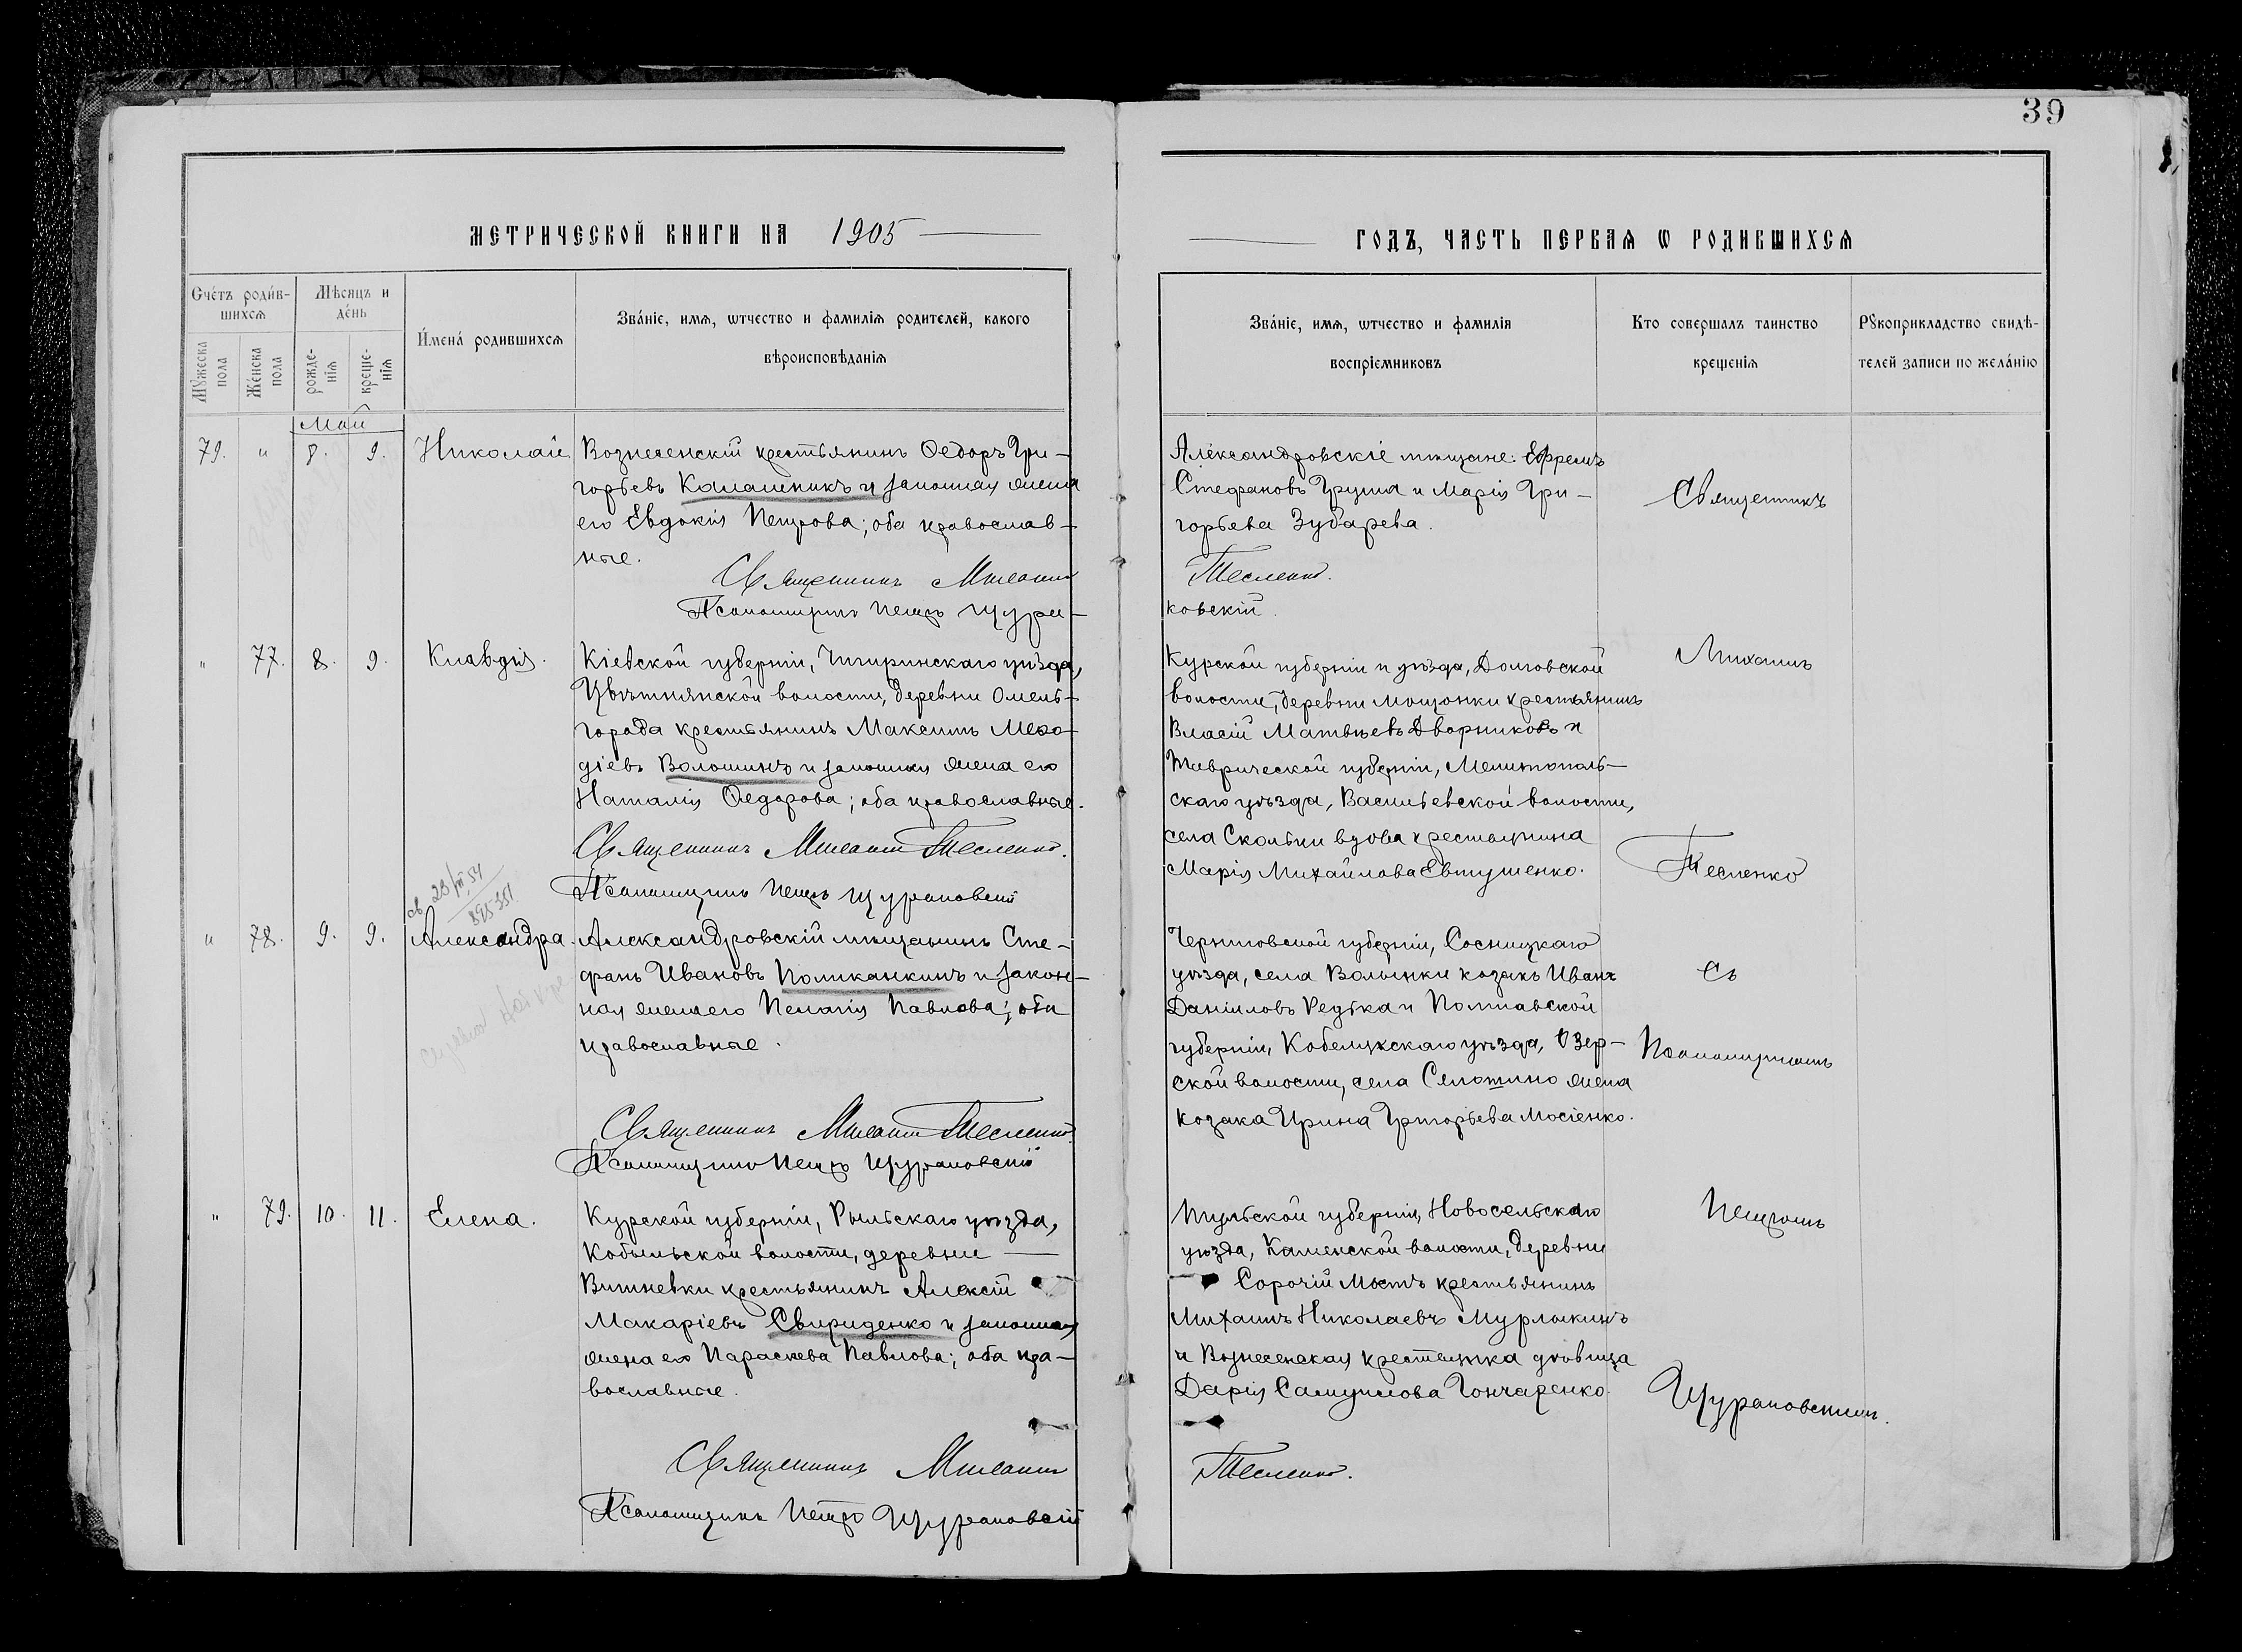 39
МЕТРИЧЕСКОЙ КНИГИ НА 1905
ГОДЪ, ЧАСТЬ ПЕРВАѦ Ѡ РОДИВШИХСѦ
Счетъ родив-
шихсѧ
Мѣсяцъ и
день
Мꙋжеска
пола
Женска
пола
рожде-
нїѧ
креще-
нїѧ
Имена родившихсѧ
Званїе, имѧ, ѿчество и фамилїѧ родителей, какого
вѣроисповѣданїѧ
Званїе, имѧ, ѿчество и фамилїѧ
воспрїемниковъ
Кто совершалъ таинство
крещенїѧ
Рꙋкоприкладство свидѣ-
телей записи по желанїю
Май
79. " 8. 9. Николай
Вознесенскій крестьянинъ Ѳедоръ Гри-
горьевъ Калашникъ и законная жена
его Евдокія Петрова; оба православ-
ные.
Священникъ Михаилъ Тесленко.
Псаломщикъ Петръ Щура-
ковскій
Александровскіе мѣщане: Ефремъ
Стефановъ Груша и Марія Гри-
горьева Зубарева.
Священникъ
" 77. 8. 9. Клавдія.
Кіевской губерніи, Чигиринскаго уѣзда,
Цвѣтнянской волости, деревни Омель-
города крестьянинъ Максимъ Меѳо-
діевъ Волошинъ и законная жена его
Наталія Ѳедорова; оба православные.
Священникъ Михаилъ Тесленко.
Псаломщикъ Петръ Щураковскій
Курской губерніи и уѣзда, Долговской
волости, деревни Мощонки крестьянинъ
Власій Матвѣевъ Дворниковъ и
Таврической губерніи, Мелитополь-
скаго уѣзда, Васильевской волости,
села Скольки вдова крестьянина
Марія Михайлова Евтушенко.
Михаилъ
Тесленко
св. 23/III 54
" 78. 9. 9. Александра.
Александровскій мѣщанинъ Сте-
фанъ Ивановъ Поликанкинъ и закон-
ная жена его Пелагія Павлова; оба
православные.
Священникъ Михаилъ Тесленко.
Псаломщикъ Петръ Щураковскій
Черниговской губерніи, Сосницкаго
уѣзда, села Волынки козакъ Иванъ
Даніиловъ Редька и Полтавской
губерніи, Кобелякскаго уѣзда, Озер-
ской волости, села жена
козака Ирина Григорьева Мосіенко.
Съ
Псаломщикомъ
" 79. 10. 11. Елена.
Курской губерніи, Рыльскаго уѣзда,
Кобыльской волости, деревни
Вишневки крестьянинъ Алексій
Макаріевъ Свириденко и законная
жена его Параскева Павлова; оба пра-
вославные.
Священникъ Михаилъ Тесленко.
Псаломщикъ Петръ Щураковскій
Тульской губерніи, Новосельскаго
уѣзда, Каменской волости, деревни
Сорочій Мостъ крестьянинъ
Михаилъ Николаевъ Мурлыкинъ
и Вознесенская крестьянка дѣвица
Дарія Самуилова Гончаренко.
Петромъ
Щураковскимъ.